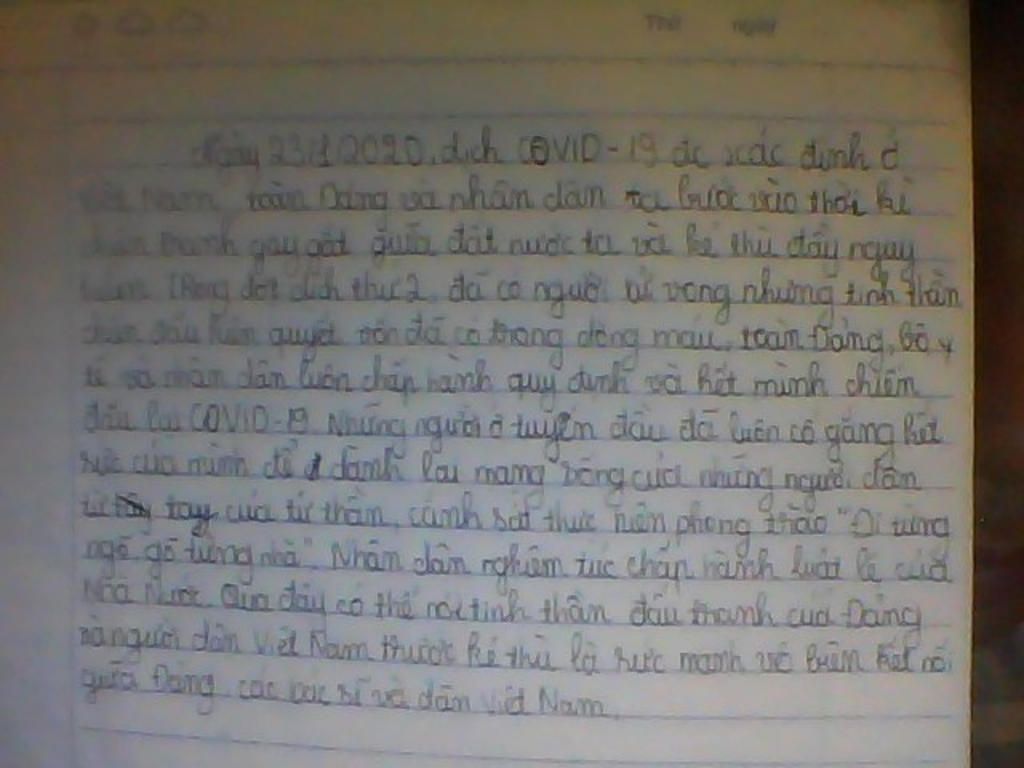 Thứ ngày
Ngày 23/1/2020, dịch COVID-19 đc xác định ở
Việt Nam, toàn Đảng và nhân dân ta bước vào thời kì
tranh gay gắt giữa đất nước ta và kẻ thù đầy nguy
hiểm. Trong đợt dịch thứ 2, đã có người tử vong nhưng tinh thần
chiến đấu kiên quyết vốn đã có trong dòng máu, toàn Đảng, bộ y
tế và nhân dân luôn chấp hành quy định và hết mình chiến
đấu lại COVID-19. Những người ở tuyến đầu đã luôn cố gắng hết
sức của mình để dành lại mạng sống của những người dân
từ tay của tử thần, cảnh sát thực hiện phong trào "Đi từng
ngõ gõ từng nhà". Nhân dân nghiêm túc chấp hành luật lệ của
Nhà Nước. Qua đây có thể nói tinh thần đấu tranh của Đảng
và người dân Việt Nam trước kẻ thù là sức mạnh vô bền kết nối
giữa Đảng, các bác sĩ và dân Việt Nam.